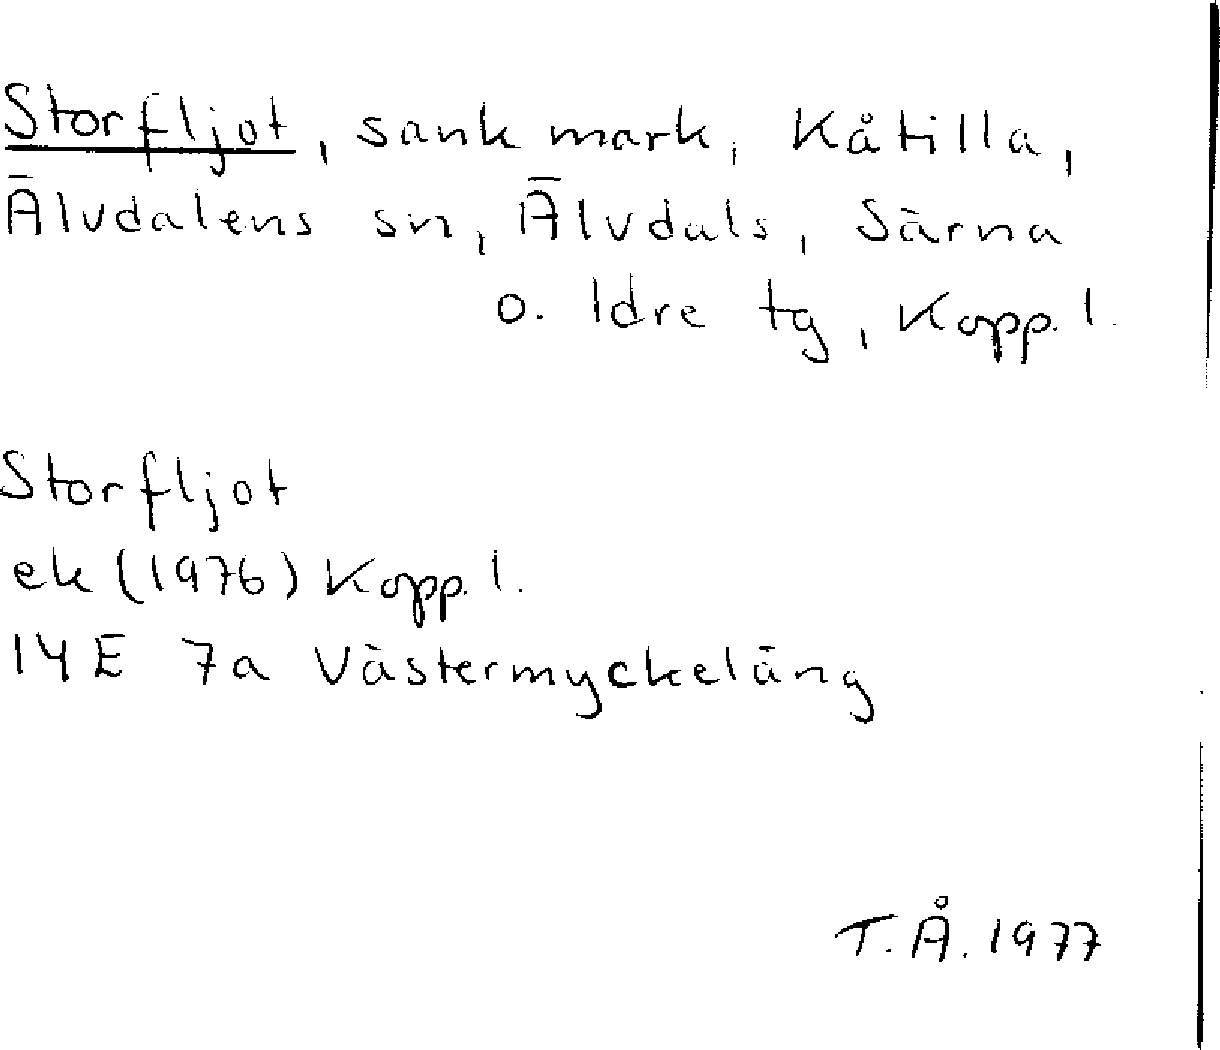 Storfljot, sank mark, Kåtilla,
Älvdalens sn, Älvdals, Särna
o. Idre tg, Kopp. l.
Storfljot
ek (1976) Kopp. l.
14E 7a Västermyckeläng
T.Å. 1977